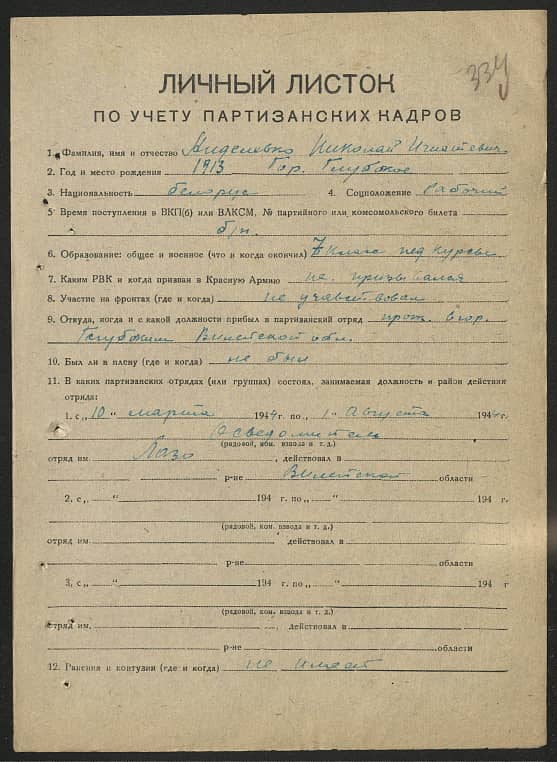 334
ЛИЧНЫЙ ЛИСТОК
ПО УЧЕТУ ПАРТИЗАНСКИХ КАДРОВ
1. Фамилия, имя и отчество Николай Игнатьевич
2. Год и место рождения 1913 Гор. Глубокое
3. Национальность белорус 4. Соцположение Рабочий
5 Время поступления в ВКП(б) или ВЛКСМ, № партийного или комсомольского билета
б/п.
6. Образование: общее и военное (что и когда окончил) 7 класс пед курсы
7. Каким РВК и когда призван в Красную Армию не призывался
8. Участие на фронтах (где и когда) не участвовал
9. Откуда, когда и с какой должности прибыл в партизанский отряд прож. в гор.
Глубокии Вилейской обл.
10. Был ли в плену (где и когда) не был
11. В каких партизанских отрядах (или группах) состоял, занимаемая должность и район действия
отряда:
1. с „10" марта 1944 г. по „1" Августа 1944 г.
Осведомитель
(рядовой, ком. взвода и т. д.)
отряд им Лазо, действовал в
р-не Вилейской области
2, с „ " 194 г. по „ " 194 г.
(рядовой, ком. взвода и т. д.)
отряд им. , действовал в
р-не области
3, с „ " 194 г. по „ " 194 г
(рядовой, ком. взвода и т. д.)
отряд им. , действовал в
р-не области
12. Ранения и контузии (где и когда) не имеет